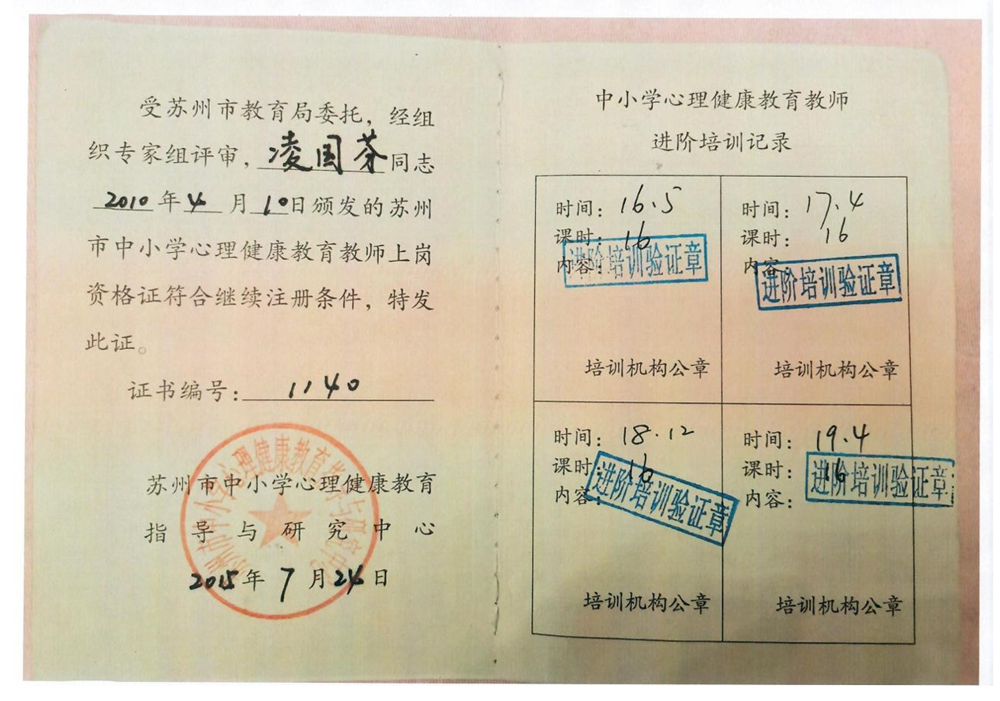 受苏州市教育局委托，经组
织专家组评审，凌国芬同志
2010年4月10日颁发的苏州
市中小学心理健康教育教师上岗
资格证符合继续注册条件，特发
此证。
证书编号：1140
苏州市中小学心理健康教育
指导与研究中心
2015年7月24日
中小学心理健康教育教师
进阶培训记录
时间：16.5
课时：16
内容：
进阶培训验证章
培训机构公章
时间：17.4
课时：16
内容
进阶培训验证章
培训机构公章
时间：18.12
课时：16
内容：
进阶培训验证章
培训机构公章
时间：19.4
课时：16
内容：
进阶培训验证章
培训机构公章